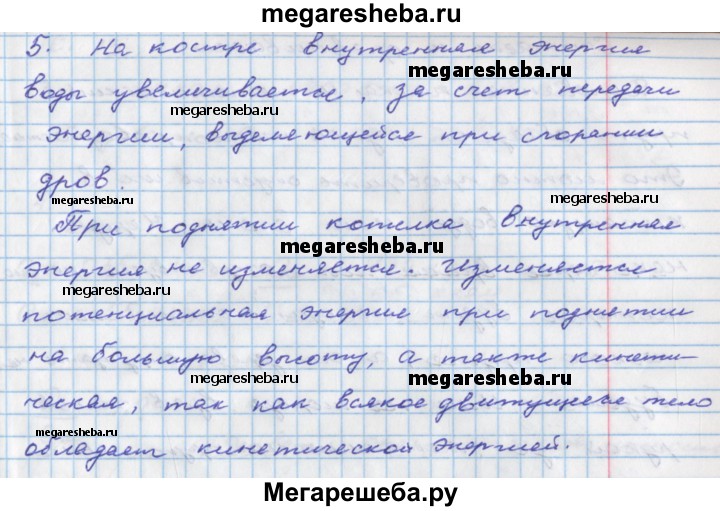 megaresheba.ru
5. На костре внутренняя энергия
megaresheba.ru
воды увеличивается, за счет передачи
megaresheba.ru
энергии, выделяющейся при сгорании
megaresheba.ru
дров.
megaresheba.ru megaresheba.ru
При поднятии котелка внутренняя
megaresheba.ru
энергия не изменяется. Изменяется
megaresheba.ru
потенциальная энергия при поднятии
на большую высоту, а также кинети-
megaresheba.ru megaresheba.ru
ческая, так как всякое движущееся тело
megaresheba.ru
обладает кинетической энергией.
Мегарешеба.ру